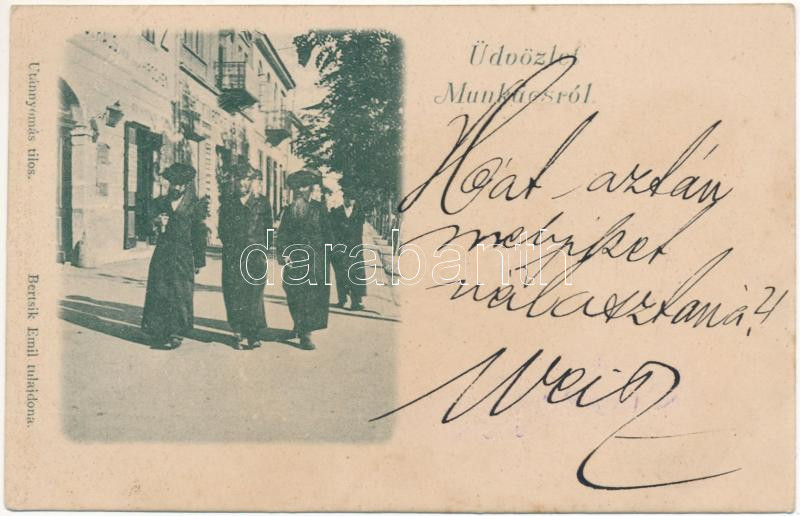 Üdvözlet
Munkácsról.
Hát aztán
melyiket
választaná?
Weisz
Utánnyomás tilos.
Bertsik Emil tulajdona.
darabanth